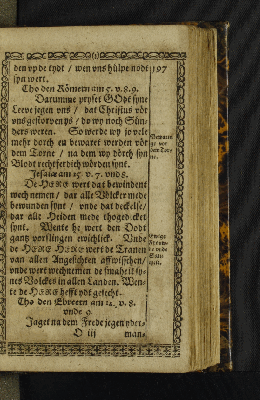 den vp de tydt / wen vns hülpe nodt
syn wert.
Tho den Römern am 5. v. 8. 9.
Darumme pryset GOdt syne
Leeve jegen vns / dat Christus vör
vns gestorven ys / do wy noch Sün-
ders weren. So werde wy jo vele
mehr dorch en bewaret werden vör
dem Torne / na dem wy dörch syn
Blodt rechtferdich wörden synt.
Jesaiae am 25. v. 7. vnd 8.
De HERE wert dat bewindent
wech nemen / dar alle Völcker mede
bewunden synt / vnde dat deckelse /
dar alle Heiden mede thogedecket
synt. Wente he wert den Dodt
gantz vorslingen ewichlick. Vnde
de HERE HERE wert de Tranen
van allen Angesichten affwisschen /
vnde wert wech nemen de smaheit sy-
nes Volckes in allen Landen. Wen-
te de HERE hefft ydt gesecht.
Tho den Ebreern am 12. v. 8.
vnde 9.
Jaget na dem Frede jegen yder-
O iij
man-
197